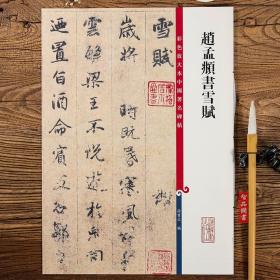 趙孟頫書雪賦
彩色放大本中國著名碑帖
孫寶文 編
雪賦
歲將 時既昏寒風
雲繁梁王不悅遊於兔
迺置旨酒命賓友召
智品圖書